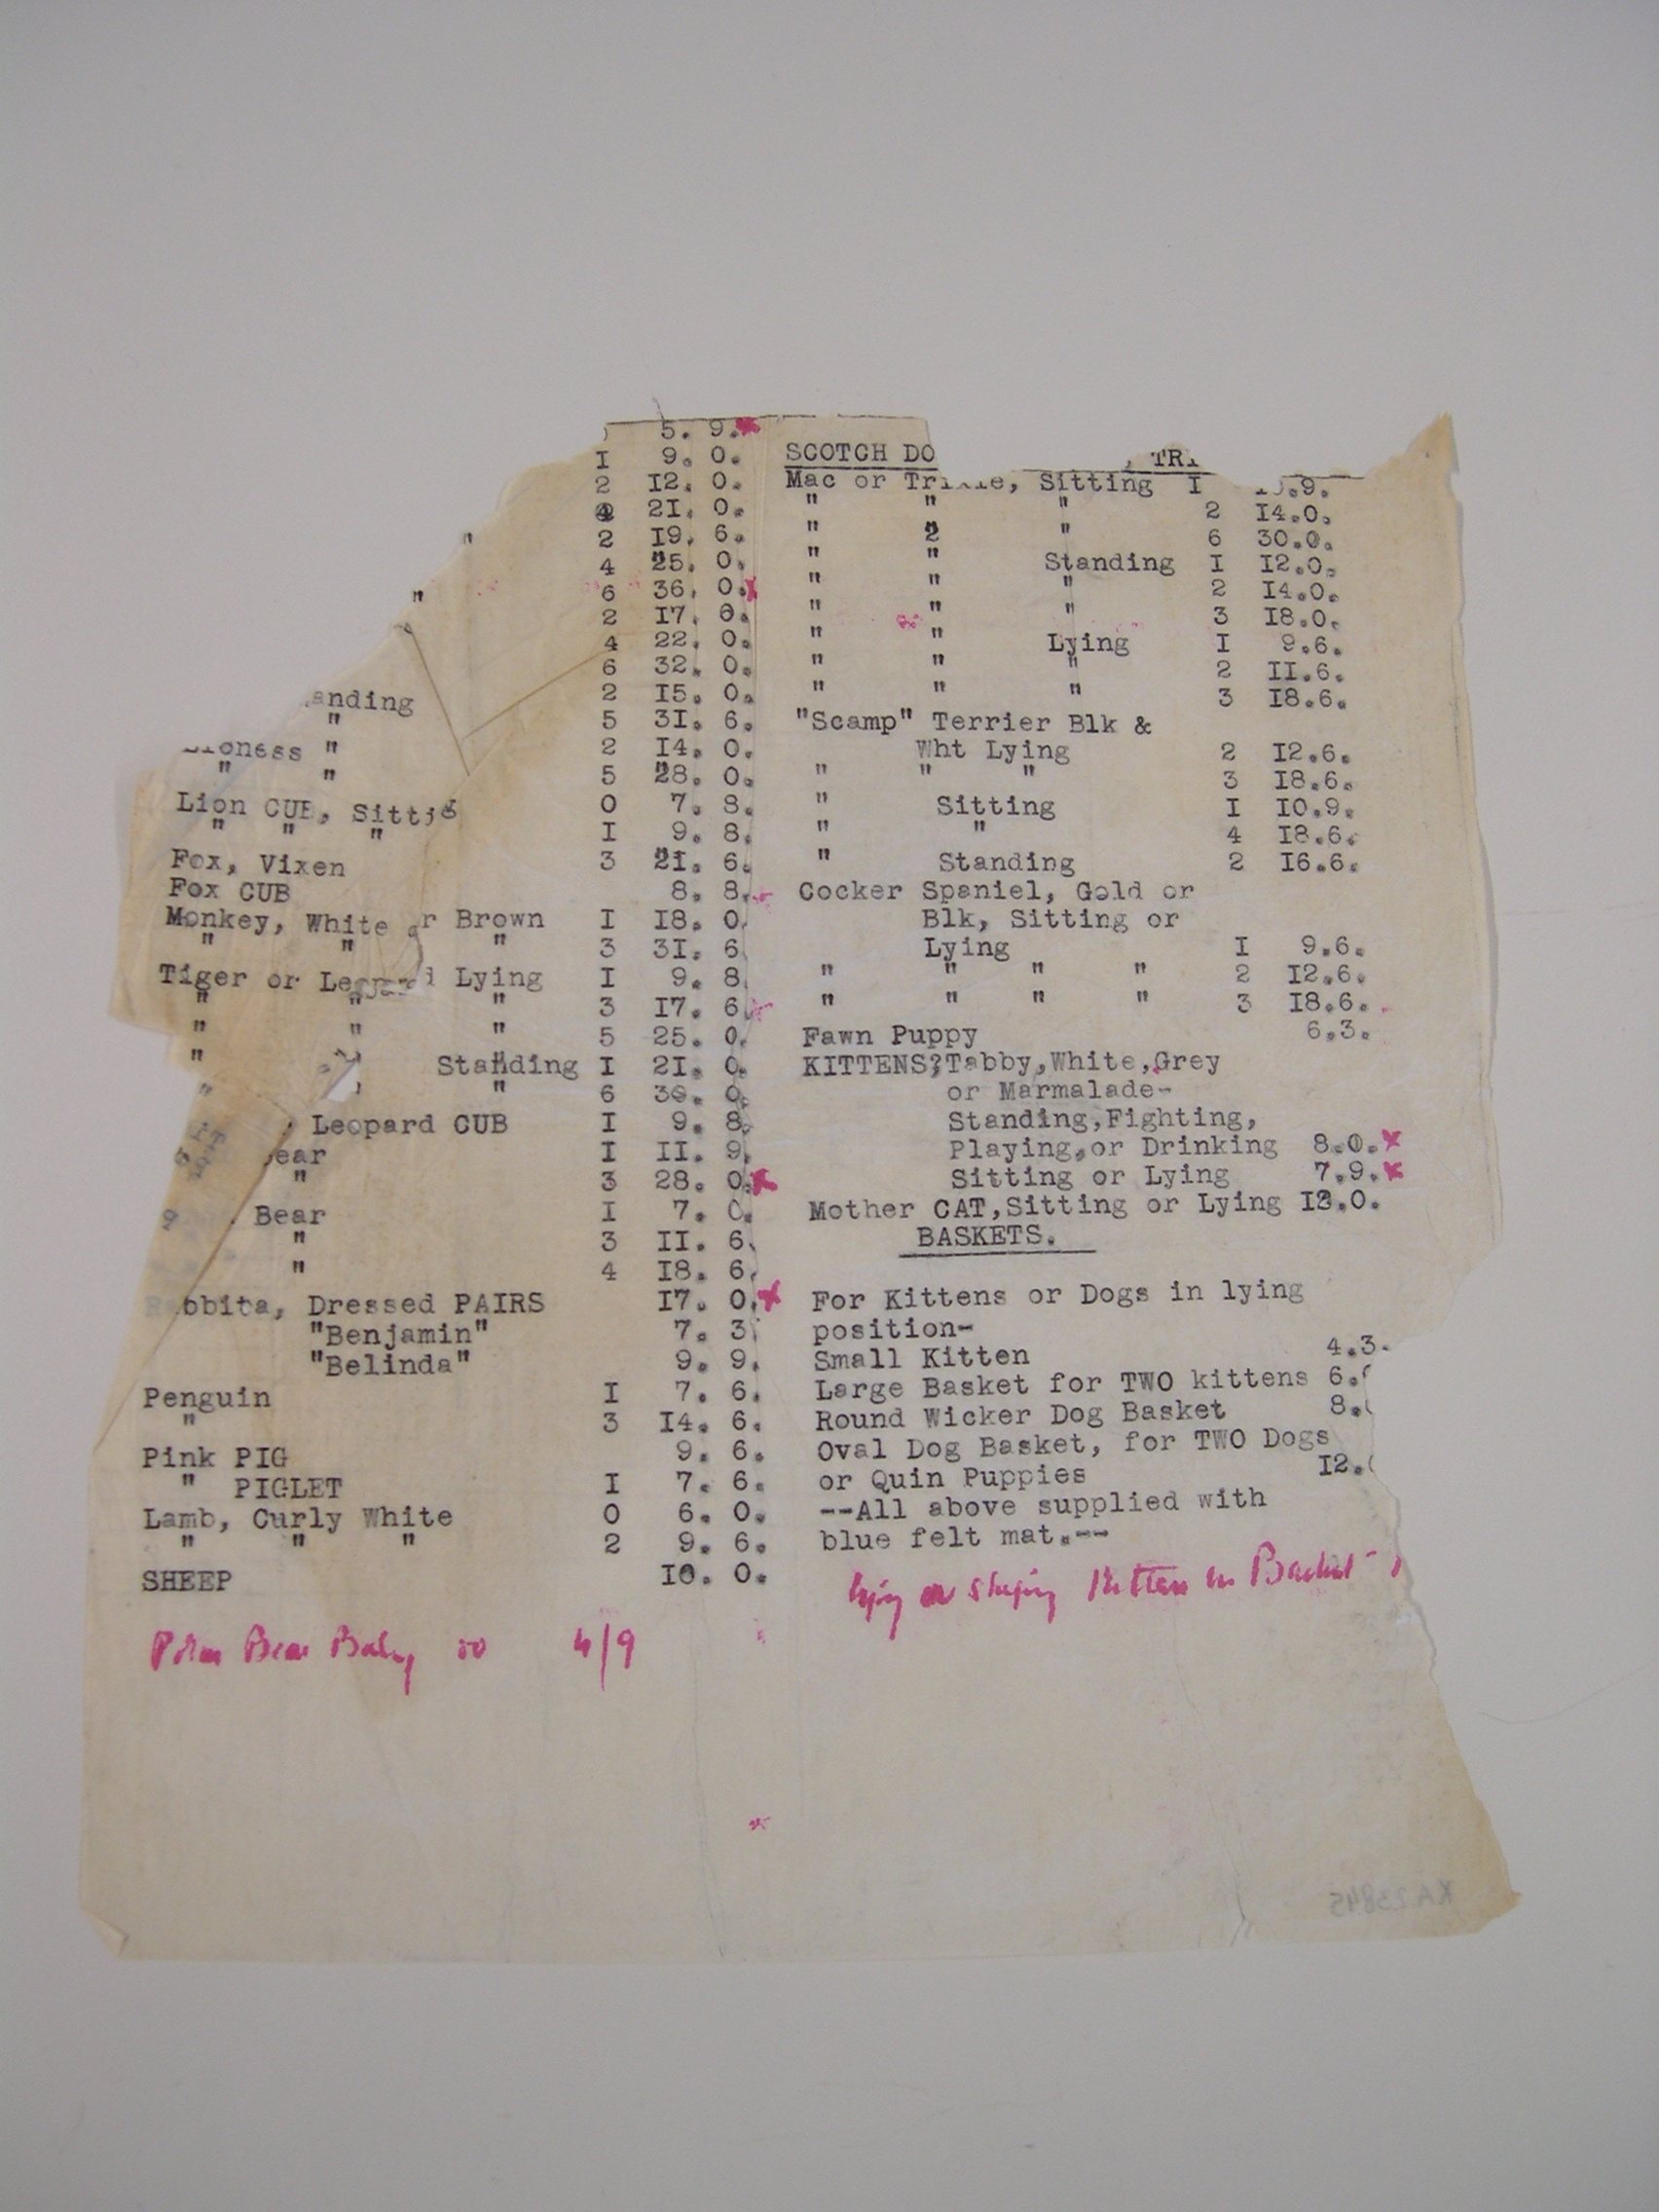 5. 9.
I 9. 0.
2 I2. 0.
4 2I. 0.
" 2 I9. 6.
4 25. 0.
" 6 36. 0.
2 I7. 6.
4 22. 0.
6 32. 0.
anding 2 I5. 0.
" 5 3I. 6.
Lioness " 2 I4. 0.
" " 5 28. 0.
Lion CUB, Sittig 0 7. 8.
" " " I 9. 8.
Fox, Vixen 3 2I. 6.
Fox CUB 8. 8.
Monkey, White or Brown I I8. 0.
" " " 3 3I. 6
Tiger or Leopard Lying I 9. 8.
" " " 3 I7. 6.
" " " 5 25. 0.
" " Standing I 2I. 0.
" " " 6 30. 0.
Leopard CUB I 9. 8.
ear I II. 9.
" 3 28. 0.
Bear I 7. 0.
" 3 II. 6.
" 4 I8. 6.
Rabbits, Dressed PAIRS I7. 0.
"Benjamin" 7. 3
"Belinda" 9. 9.
Penguin I 7. 6.
" 3 I4. 6.
Pink PIG 9. 6.
" PIGLET I 7. 6.
Lamb, Curly White 0 6. 0.
" " " 2 9. 6.
SHEEP I0. 0.
Polar Bear Baby 4/9
SCOTCH DO , TRI
Mac or Trixie, Sitting I .9.
" " " 2 I4.0.
" 2 " 6 30.0.
" " Standing I I2.0.
" " " 2 I4.0.
" " " 3 I8.0.
" " Lying I 9.6.
" " " 2 II.6.
" " " 3 I8.6.
"Scamp" Terrier Blk &
Wht Lying 2 I2.6.
" " " 3 I8.6.
" Sitting I I0.9.
" " 4 I8.6.
" Standing 2 I6.6.
Cocker Spaniel, Gold or
Blk, Sitting or
Lying I 9.6.
" " " " 2 I2.6.
" " " " 3 I8.6.
Fawn Puppy 6.3.
KITTENS;Tabby,White,Grey
or Marmalade-
Standing,Fighting,
Playing,or Drinking 8.0.
Sitting or Lying 7.9.
Mother CAT,Sitting or Lying .0.
BASKETS.
For Kittens or Dogs in lying
position-
Small Kitten 4.3.
Large Basket for TWO kittens 6.
Round Wicker Dog Basket 8.
Oval Dog Basket, for TWO Dogs
or Quin Puppies I2.
--All above supplied with
blue felt mat.--
lying or sleeping Kitten in Basket